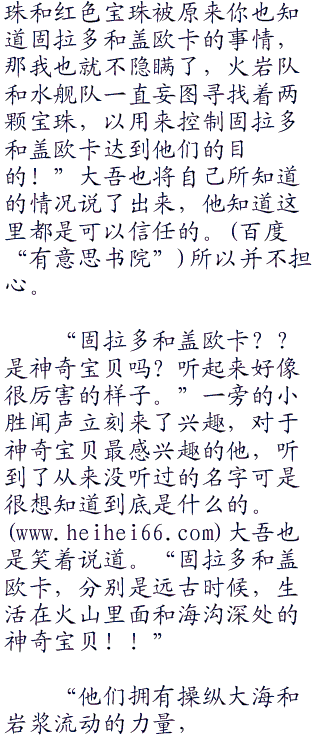 珠和红色宝珠被原来你也知
道固拉多和盖欧卡的事情，
那我也就不隐瞒了，火岩队
和水舰队一直妄图寻找着两
颗宝珠，以用来控制固拉多
和盖欧卡达到他们的目
的！”大吾也将自己所知道
的情况说了出来，他知道这
里都是可以信任的。(百度
“有意思书院”)所以并不担
心。
“固拉多和盖欧卡？？
是神奇宝贝吗？听起来好像
很厉害的样子。”一旁的小
胜闻声立刻来了兴趣，对于
神奇宝贝最感兴趣的他，听
到了从来没听过的名字可是
很想知道到底是什么的。
(www.heihei66.com)大吾也
是笑着说道。“固拉多和盖
欧卡，分别是远古时候，生
活在火山里面和海沟深处的
神奇宝贝！！”
“他们拥有操纵大海和
岩浆流动的力量，